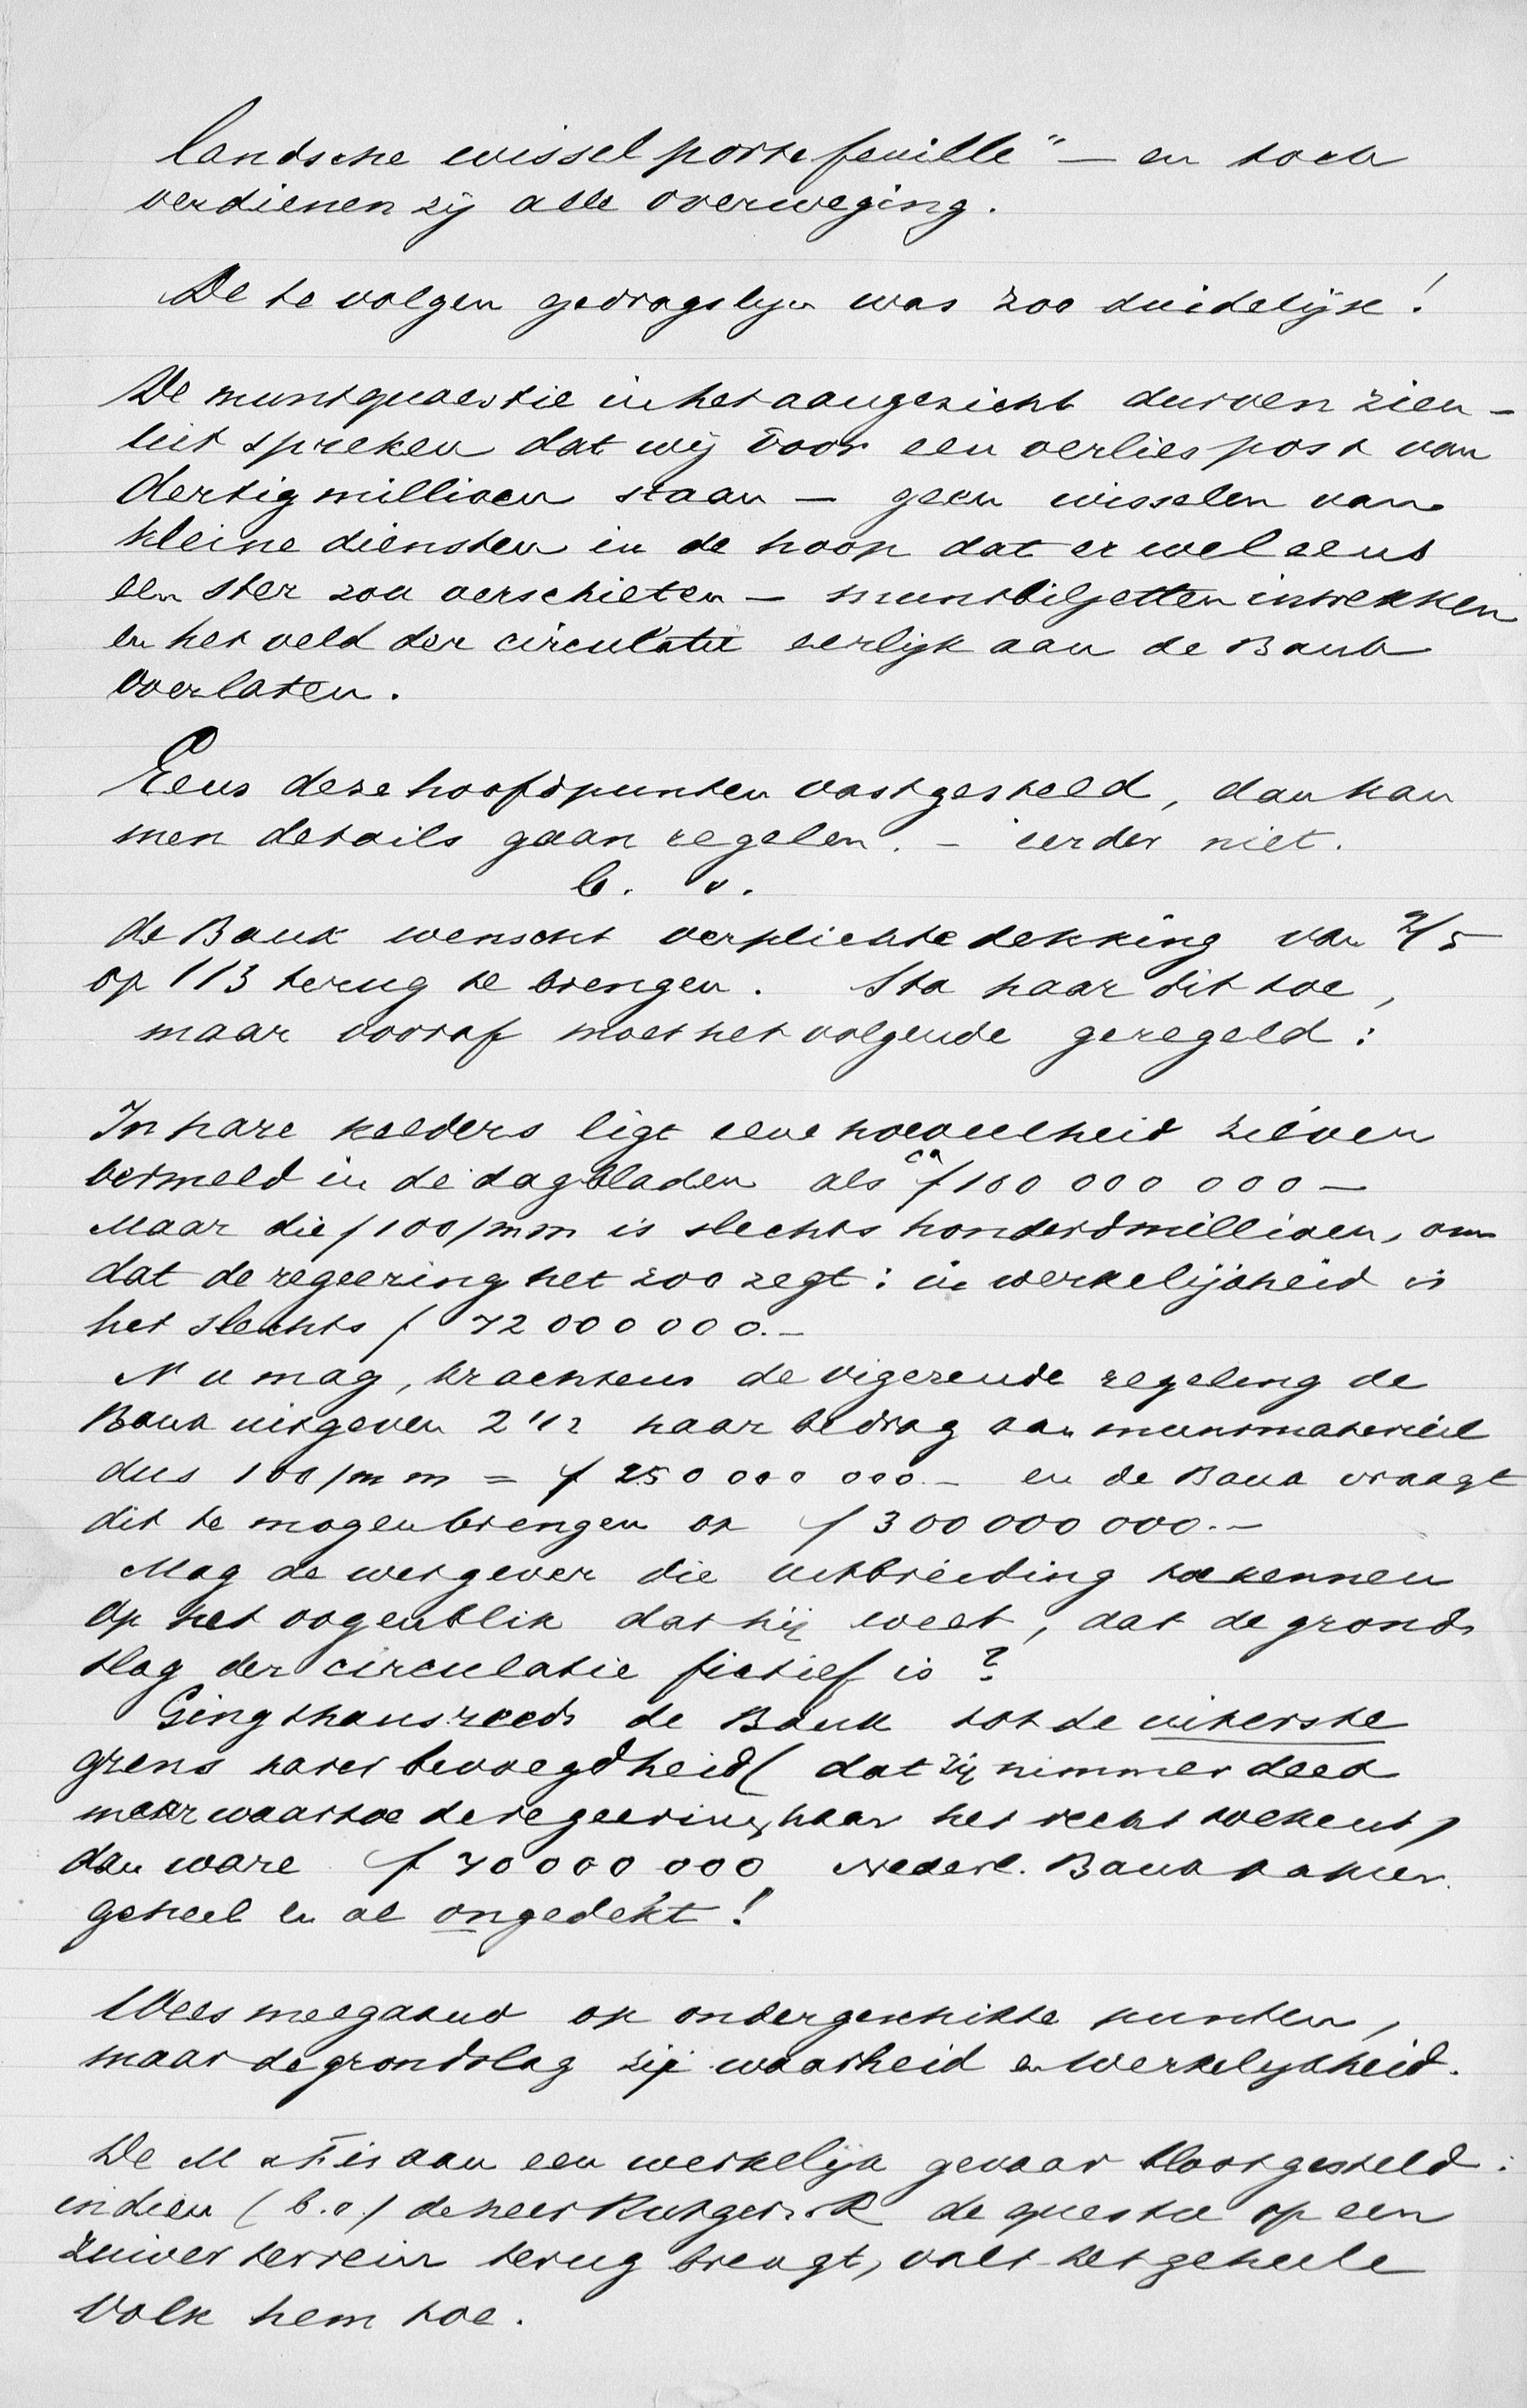 landsche wisselportefeuille" — en toch
verdienen zij alle overweging.
De te volgen gedragslijn was zoo duidelijk!
De muntquaestie in het aangezicht durven zien –
uit spreken dat wij voor een verliespost van
dertig millioen staan — geen wisselen van
kleine diensten in de hoop dat er wel eens
een ster zou verschieten — muntbiljetten intrekken
en het veld der circulatie eerlijk aan de Bank
overlaten.
Eens deze hoofdpunten vastgesteld, dan kan
men details gaan regelen. – eerder niet.
b. v.
de Bank wenscht verplichte dekking van 2/5
op 1/3 terug te brengen. Sta haar dit toe,
maar vooraf moet het volgende geregeld:
In hare kelders ligt eene hoeveelheid zilver
vermeld in de dagbladen als ca f 100 000 000 —
Maar die f 100/mm is slechts honderd millioen, om
dat de regeering het zoo zegt: in werkelijkheid is
het slechts f 72 000 000.–
Nu mag, krachtens de vigerende regeling de
Bank uitgeven 2 1/2 haar bedrag aan muntmateriëel
dus 100/mm = f 250 000 000.– en de Bank vraagt
dit te mogen brengen op f 300 000 000.–
Mag de wetgever die uitbreiding toekennen
op het oogenblik dat hij weet, dat de gronds
slag der circulatie fictief is?
Ging thans reeds de Bank tot de uiterste
grens harer bevoegdheid (dat zij nimmer deed
maar waartoe de regeering haar het recht toekent)
dan ware f 70 000 000 Nederl. Bankpapier
geheel en al ongedekt!
Wees meegaand op ondergeschikte punten,
maar de grondslag zij waarheid en werkelijkheid.
De M v F is aan een werkelijk gevaar blootgesteld:
indien (b.v.) de heer Rutgers v R de questie op een
zuiver terrein terug brengt, valt het geheele
Volk hem toe.